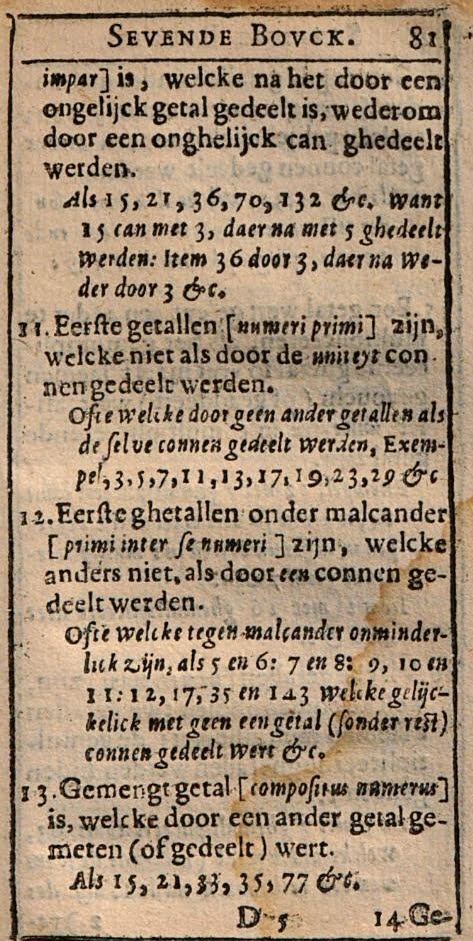 SEVENDE BOVCK. 81
impar] is, welcke na het door een
ongelijck getal gedeelt is, wederom
door een onghelijck can ghedeelt
werden.
Als 15, 21, 36, 70, 132 &c. want
15 can met 3, daer na met 5 ghedeelt
werden: Item 36 door 3, daer na we-
der door 3 &c.
11. Eerſte getallen [numeri primi] zijn,
welcke niet als door de uniteyt con
nen gedeelt werden.
Ofte welcke door geen ander getallen als
de ſelve connen gedeelt werden, Exem-
pel, 3, 5, 7, 11, 13, 17, 19, 23, 29 &c
12. Eerſte ghetallen onder malcander
[primi inter ſe numeri] zijn, welcke
anders niet, als door een connen ge-
deelt werden.
Ofte welcke tegen malcander onminder-
lick zijn, als 5 en 6: 7 en 8: 9, 10 en
11: 12, 17, 35 en 143 welcke gelijc-
kelick met geen een getal (ſonder reſt)
connen gedeelt wert &c.
13. Gemengt getal [compoſitus numerus]
is, welcke door een ander getal ge-
meten (of gedeelt) wert.
Als 15, 21, 33, 35, 77 &c.
D 5 14 Ge-